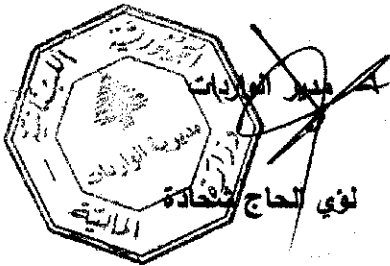 الجمهورية
اللبنانية
وزارة
المالية
مديرية الواردات
مدير الواردات
لؤي الحاج شحادة